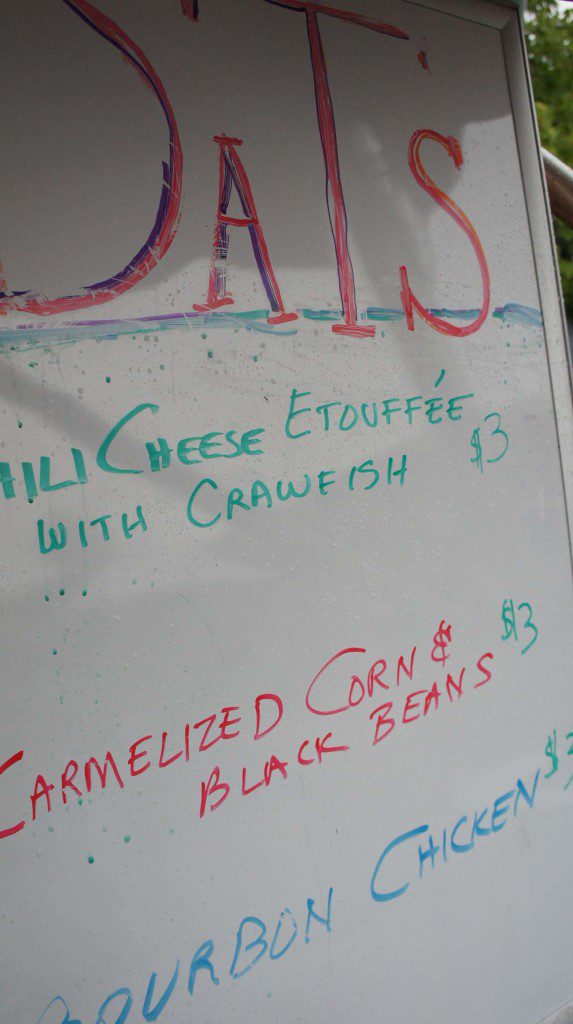 DAT'S
HILI CHEESE ETOUFFÉE
WITH CRAWFISH $3
CARMELIZED CORN & $3
BLACK BEANS
BOURBON CHICKEN $3